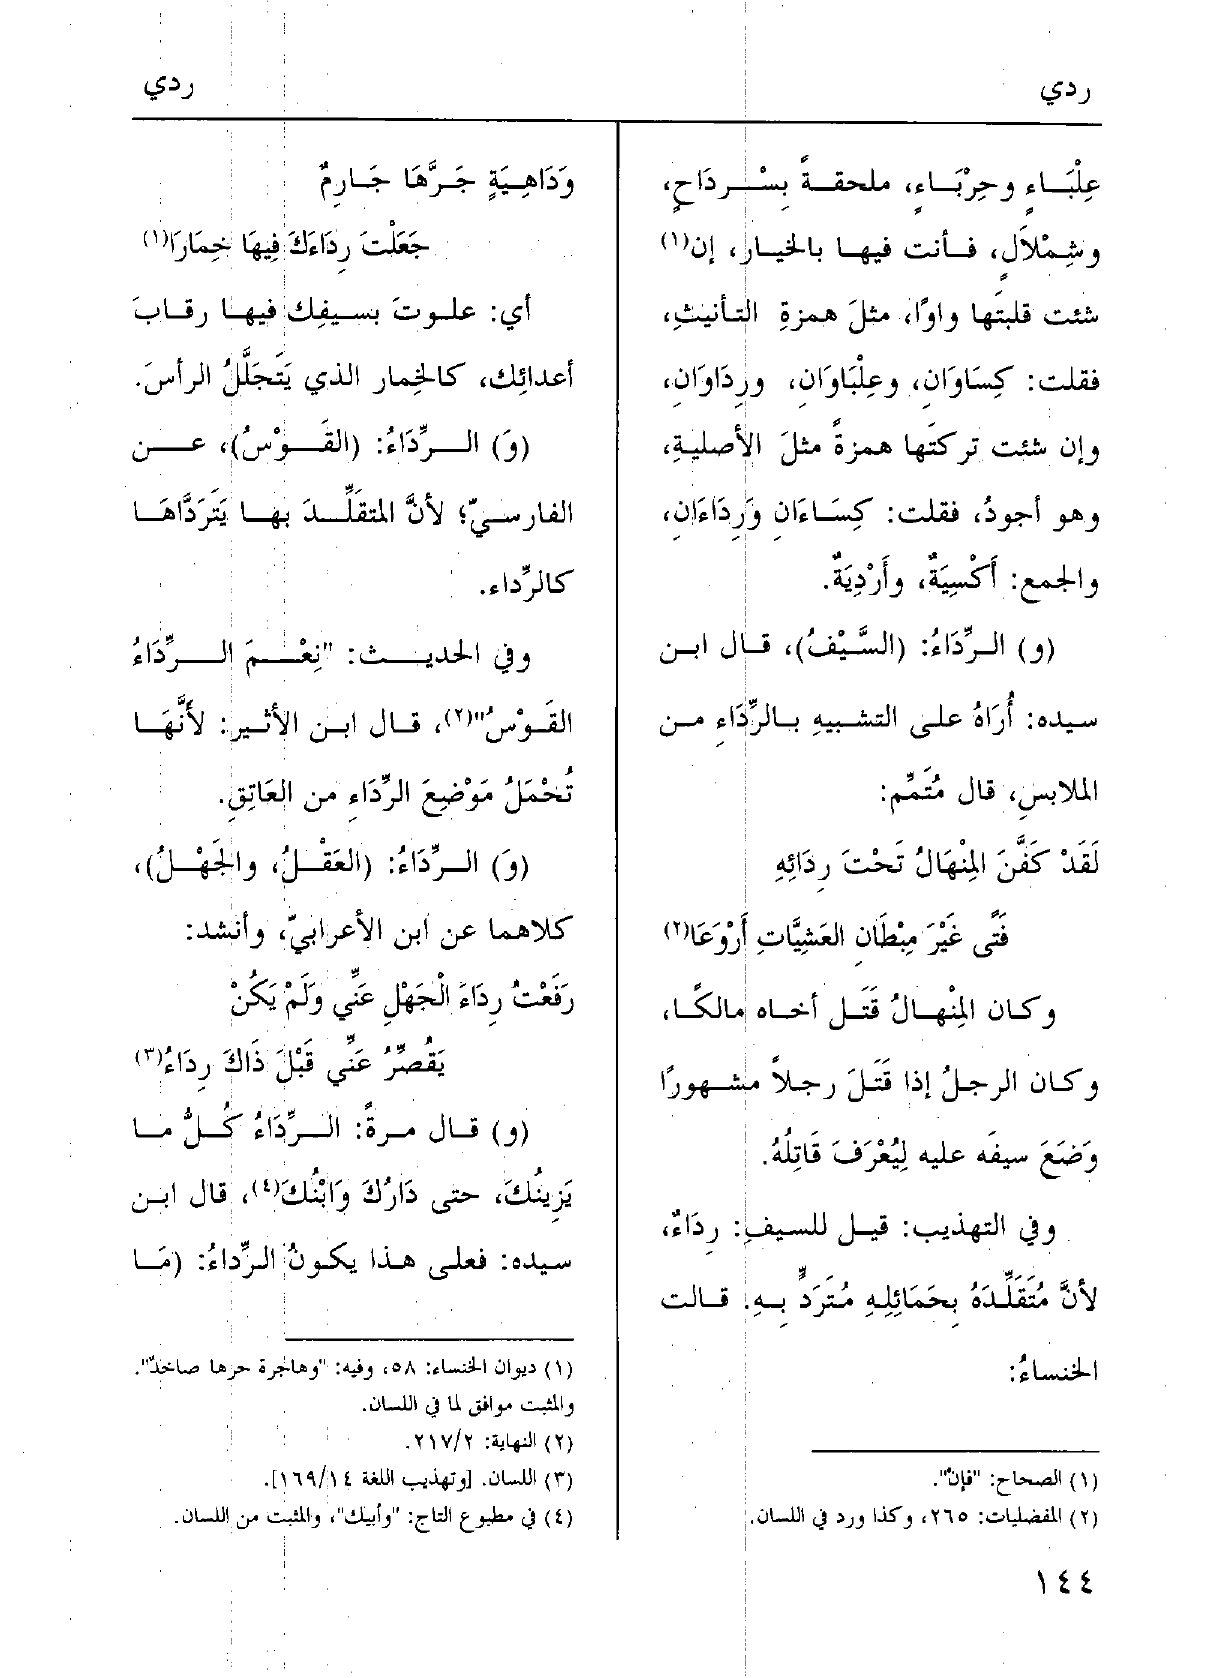 ردي
ردي
عِلْبَاءٍ وحِرْبَاءٍ، ملحقةً بسْرداحٍ،
وشِمْلاَلٍ، فأنت فيها بالخيار، إن(١)
شئت قلبتَها واوًا، مثلَ همزةِ التأنيثِ،
فقلت: كِسَاوَانِ، وعِلْبَاوَانِ، ورِدَاوَانِ،
وإن شئت تركتَها همزةً مثلَ الأصليةِ،
وهو أجودُ، فقلت: كِسَاءَانِ وَرِدَاءَانِ،
والجمع: أَكْسِيَةٌ، وأَرْدِيَةٌ.
(و) الرِّدَاءُ: (السَّيْفُ)، قال ابن
سيده: أُرَاهُ على التشبيهِ بالرِّدَاءِ من
الملابسِ، قال مُتَمِّم:
لَقَدْ كَفَّنَ المِنْهَالُ تَحْتَ رِدَائِهِ
فَتًى غَيْرَ مِبْطَانِ العَشِيَّاتِ أَرْوَعَا(٢)
وكان المِنْهالُ قَتَلَ أخاه مالكًا،
وكان الرجلُ إذا قَتَلَ رجلاً مشهورًا
وَضَعَ سيفَه عليه لِيُعْرَفَ قَاتِلُهُ.
وفي التهذيب: قيل للسيفِ: رِدَاءٌ،
لأنَّ مُتَقَلِّدَهُ بِحَمَائِلِهِ مُتَرَدٍّ بِهِ. قالت
الخنساءُ:
(١) الصحاح: "فإنْ".
(٢) المفضليات: ٢٦٥، وكذا ورد في اللسان.
وَدَاهِيَةٍ جَرَّهَا جَارِمٌ
جَعَلْتَ رِدَاءَكَ فِيهَا خِمَارَا(١)
أي: علوتَ بسيفِك فيها رقابَ
أعدائِك، كالخِمار الذي يَتَجَلَّلُ الرأسَ.
(وَ) الرِّدَاءُ: (القَوْسُ)، عن
الفارسيّ؛ لأنَّ المتقَلِّدَ بها يَتَرَدَّاهَا
كالرِّداء.
وفي الحديث: "نِعْمَ الرِّدَاءُ
القَوْسُ"(٢)، قال ابن الأثير: لأنَّهَا
تُحْمَلُ مَوْضِعَ الرِّدَاءِ من العَاتِقِ.
(وَ) الرِّدَاءُ: (العَقْلُ، والجَهْلُ)،
كلاهما عن ابن الأعرابيّ، وأنشد:
رَفَعْتُ رِدَاءَ الْجَهْلِ عَنِّي وَلَمْ يَكُنْ
يُقَصِّرُ عَنِّي قَبْلَ ذَاكَ رِدَاءُ(٣)
(و) قال مرةً: الرِّدَاءُ كُلُّ ما
يَزِينُكَ، حتى دَارُكَ وَابْنُكَ(٤)، قال ابن
سيده: فعلى هذا يكونُ الرِّداءُ: (مَا
(١) ديوان الخنساء: ٥٨، وفيه: "وهاجرة حرها صاخدٌ".
والمثبت موافق لما في اللسان.
(٢) النهاية: ٢١٧/٢.
(٣) اللسان. [وتهذيب اللغة ١٦٩/١٤].
(٤) في مطبوع التاج: "وأبيك"، والمثبت من اللسان.
١٤٤